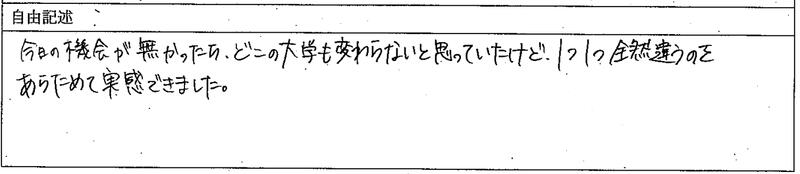 自由記述
今日の機会が無かったら、どこの大学も変わらないと思っていたけど、1つ1つ全然違うのを
あらためて実感できました。